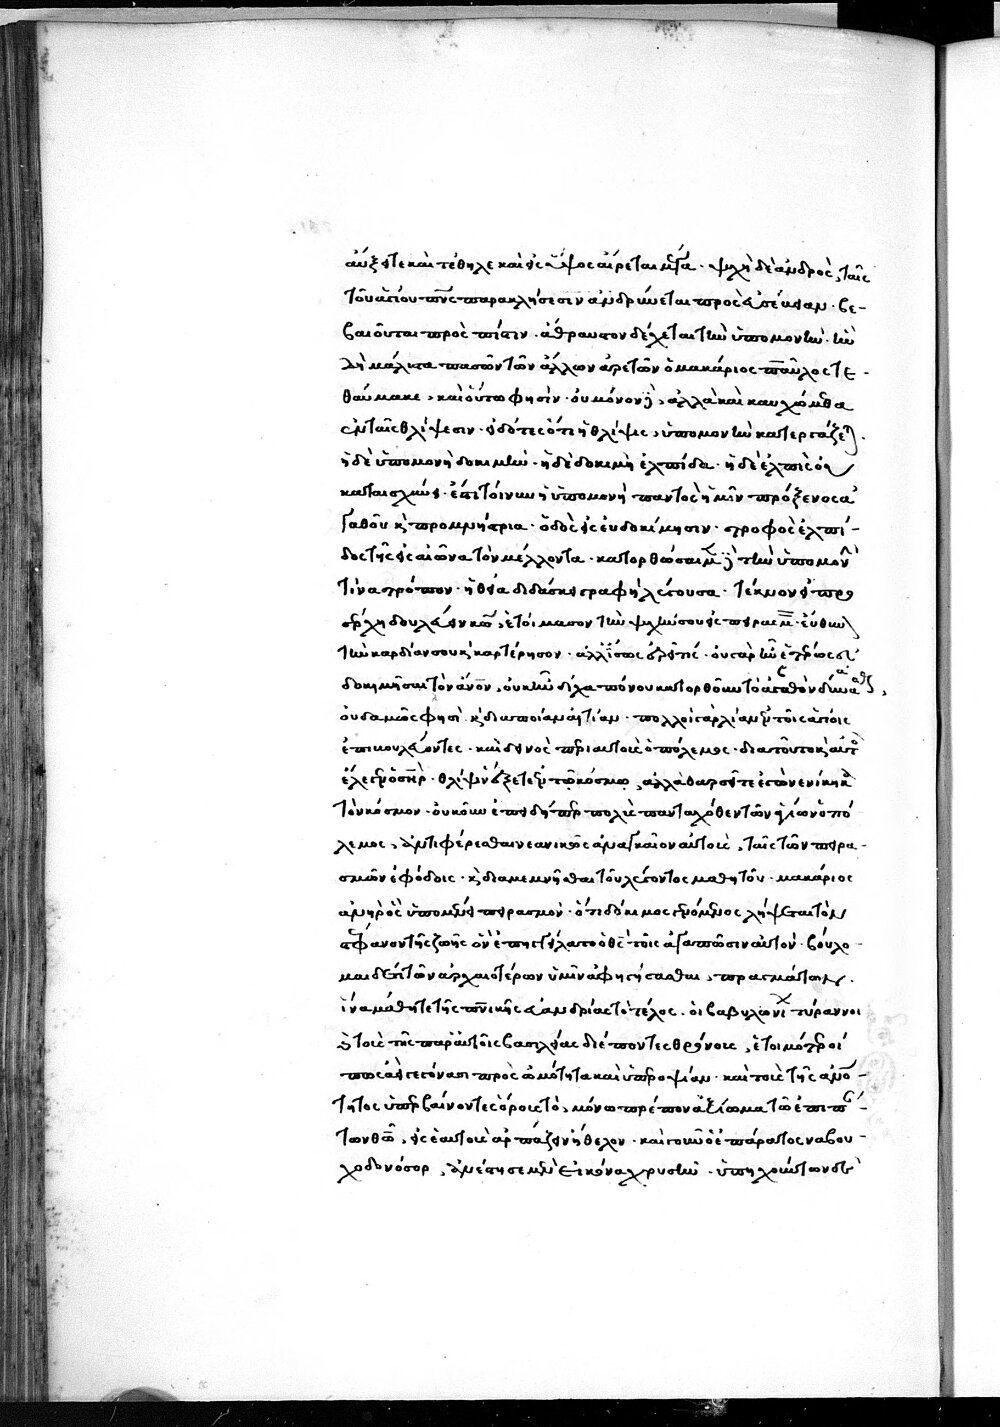 αὔξει τε καὶ τέθηλε καὶ εἰς ὕψος αἴρεται μέγα· ψυχὴ δὲ ἀνδρὸς, ταῖς
τοῦ ἁγίου πνς παρακλήσεσιν ἀνδρίζεται πρὸς εὐσέβειαν· βε-
βαιοῦται πρὸς πίστιν· ἄθραυστον δέχεται τὴν ὑπομονὴν· ἣν
δὴ μάλιστα πασῶν τῶν ἄλλων ἀρετῶν ὁ μακάριος παῦλος τε-
θαύμακε, καὶ οὕτω φησὶν· οὐ μόνον δὲ, ἀλλὰ καὶ καυχώμεθα
ἐν ταῖς θλίψεσιν· εἰδότες ὅτι ἡ θλίψις, ὑπομονὴν κατεργάζεται·
ἡ δὲ ὑπομονὴ δοκιμὴν· ἡ δὲ δοκιμὴ ἐλπίδα· ἡ δὲ ἐλπὶς οὐ
καταισχύνει· ἔστι τοίνυν ἡ ὑπομονὴ παντὸς ἡμῖν πρόξενος ἀ
γαθοῦ κ προμνήστρια· ὁδὸς εἰς εὐδοκίμησιν· τροφὸς ἐλπί-
δος τῆς εἰς αἰῶνα τὸν μέλλοντα· κατορθώσαιμεν δὲ τὴν ὑπομονὴν
τίνα τρόπον· ἡ θεία διδάσκει γραφὴ λέγουσα· τέκνον εἰ προσ
έρχῃ δουλεύειν κω, ἑτοίμασον τὴν ψυχήν σου εἰς πειρασμ· εὔθυνον
τὴν καρδίαν σου κ καρτέρησον· ἀλλ' ἴσως
δοκιμῆσαι τὸν ἄνον, οὐκ ἦν δίχα πόνου κατορθοῦν τὸ ἀγαθὸν
οὐδαμῶς φησὶ κ διὰ ποίαν αἰτίαν· πολλοὶ γὰρ λίαν εἰσὶ τοῖς ἁγίοις
ἐπιβουλεύοντες· καὶ δεινὸς περὶ αὐτοὺς ὁ πόλεμος· διὰ τοῦτο κ αὐτὸς
ἔλεγεν ὁ σηρ· θλίψιν ἕξετε ἐν τῶ κόσμω, ἀλλὰ θαρσεῖτε ἐγὼ νενίκηκα
τὸν κόσμον· οὐκοῦν ἐπειδήπερ πολὺς πανταχόθεν τῶν ἁγίων ὁ πό
λεμος, ἀντιφέρεσθαι νεανικῶς ἀναγκαῖον αὐτοὺς, ταῖς τῶν πειρα-
σμῶν ἐφόδοις· κ διαμεμνῆσθαι τοῦ λέγοντος μαθητοῦ· μακάριος
ἀνὴρ ὃς ὑπομένει πειρασμὸν· ὅτι δόκιμος γενόμενος λήψεται τὸν
στέφανον τῆς ζωῆς ὃν ἐπηγγείλατο ὁ θς τοῖς ἀγαπῶσιν αὐτὸν· βούλο-
μαι δέ τι τῶν ἀρχαιοτέρων ὑμῖν ἀφηγήσασθαι, πραγμάτων·
ἵνα μάθητε τῆς πνικῆς εὐανδρίας τὸ τέλος· οἱ βαβυλωνίων τύραννοι
τοῖς τῆς παρ' αὐτοῖς βασιλείας διέποντες θρόνοις, ἑτοιμότεροί
πως ἀεὶ γεγόνασι πρὸς ὠμότητα καὶ ὑπεροψίαν· καὶ τοὺς τῆς ἀνο-
τητος ὑπερβαίνοντες ὅρους τὸ, μόνω πρέπον ἀξίωμα τῶ ἐπὶ πάν-
των θῶ, εἰς ἑαυτοὺς ἁρπάζειν ἤθελον· καὶ γοῦν ὁ ἐπάρατος ναβου-
χοδονόσορ, ἀνέστησε μὲν εἰκόνα χρυσῆν·